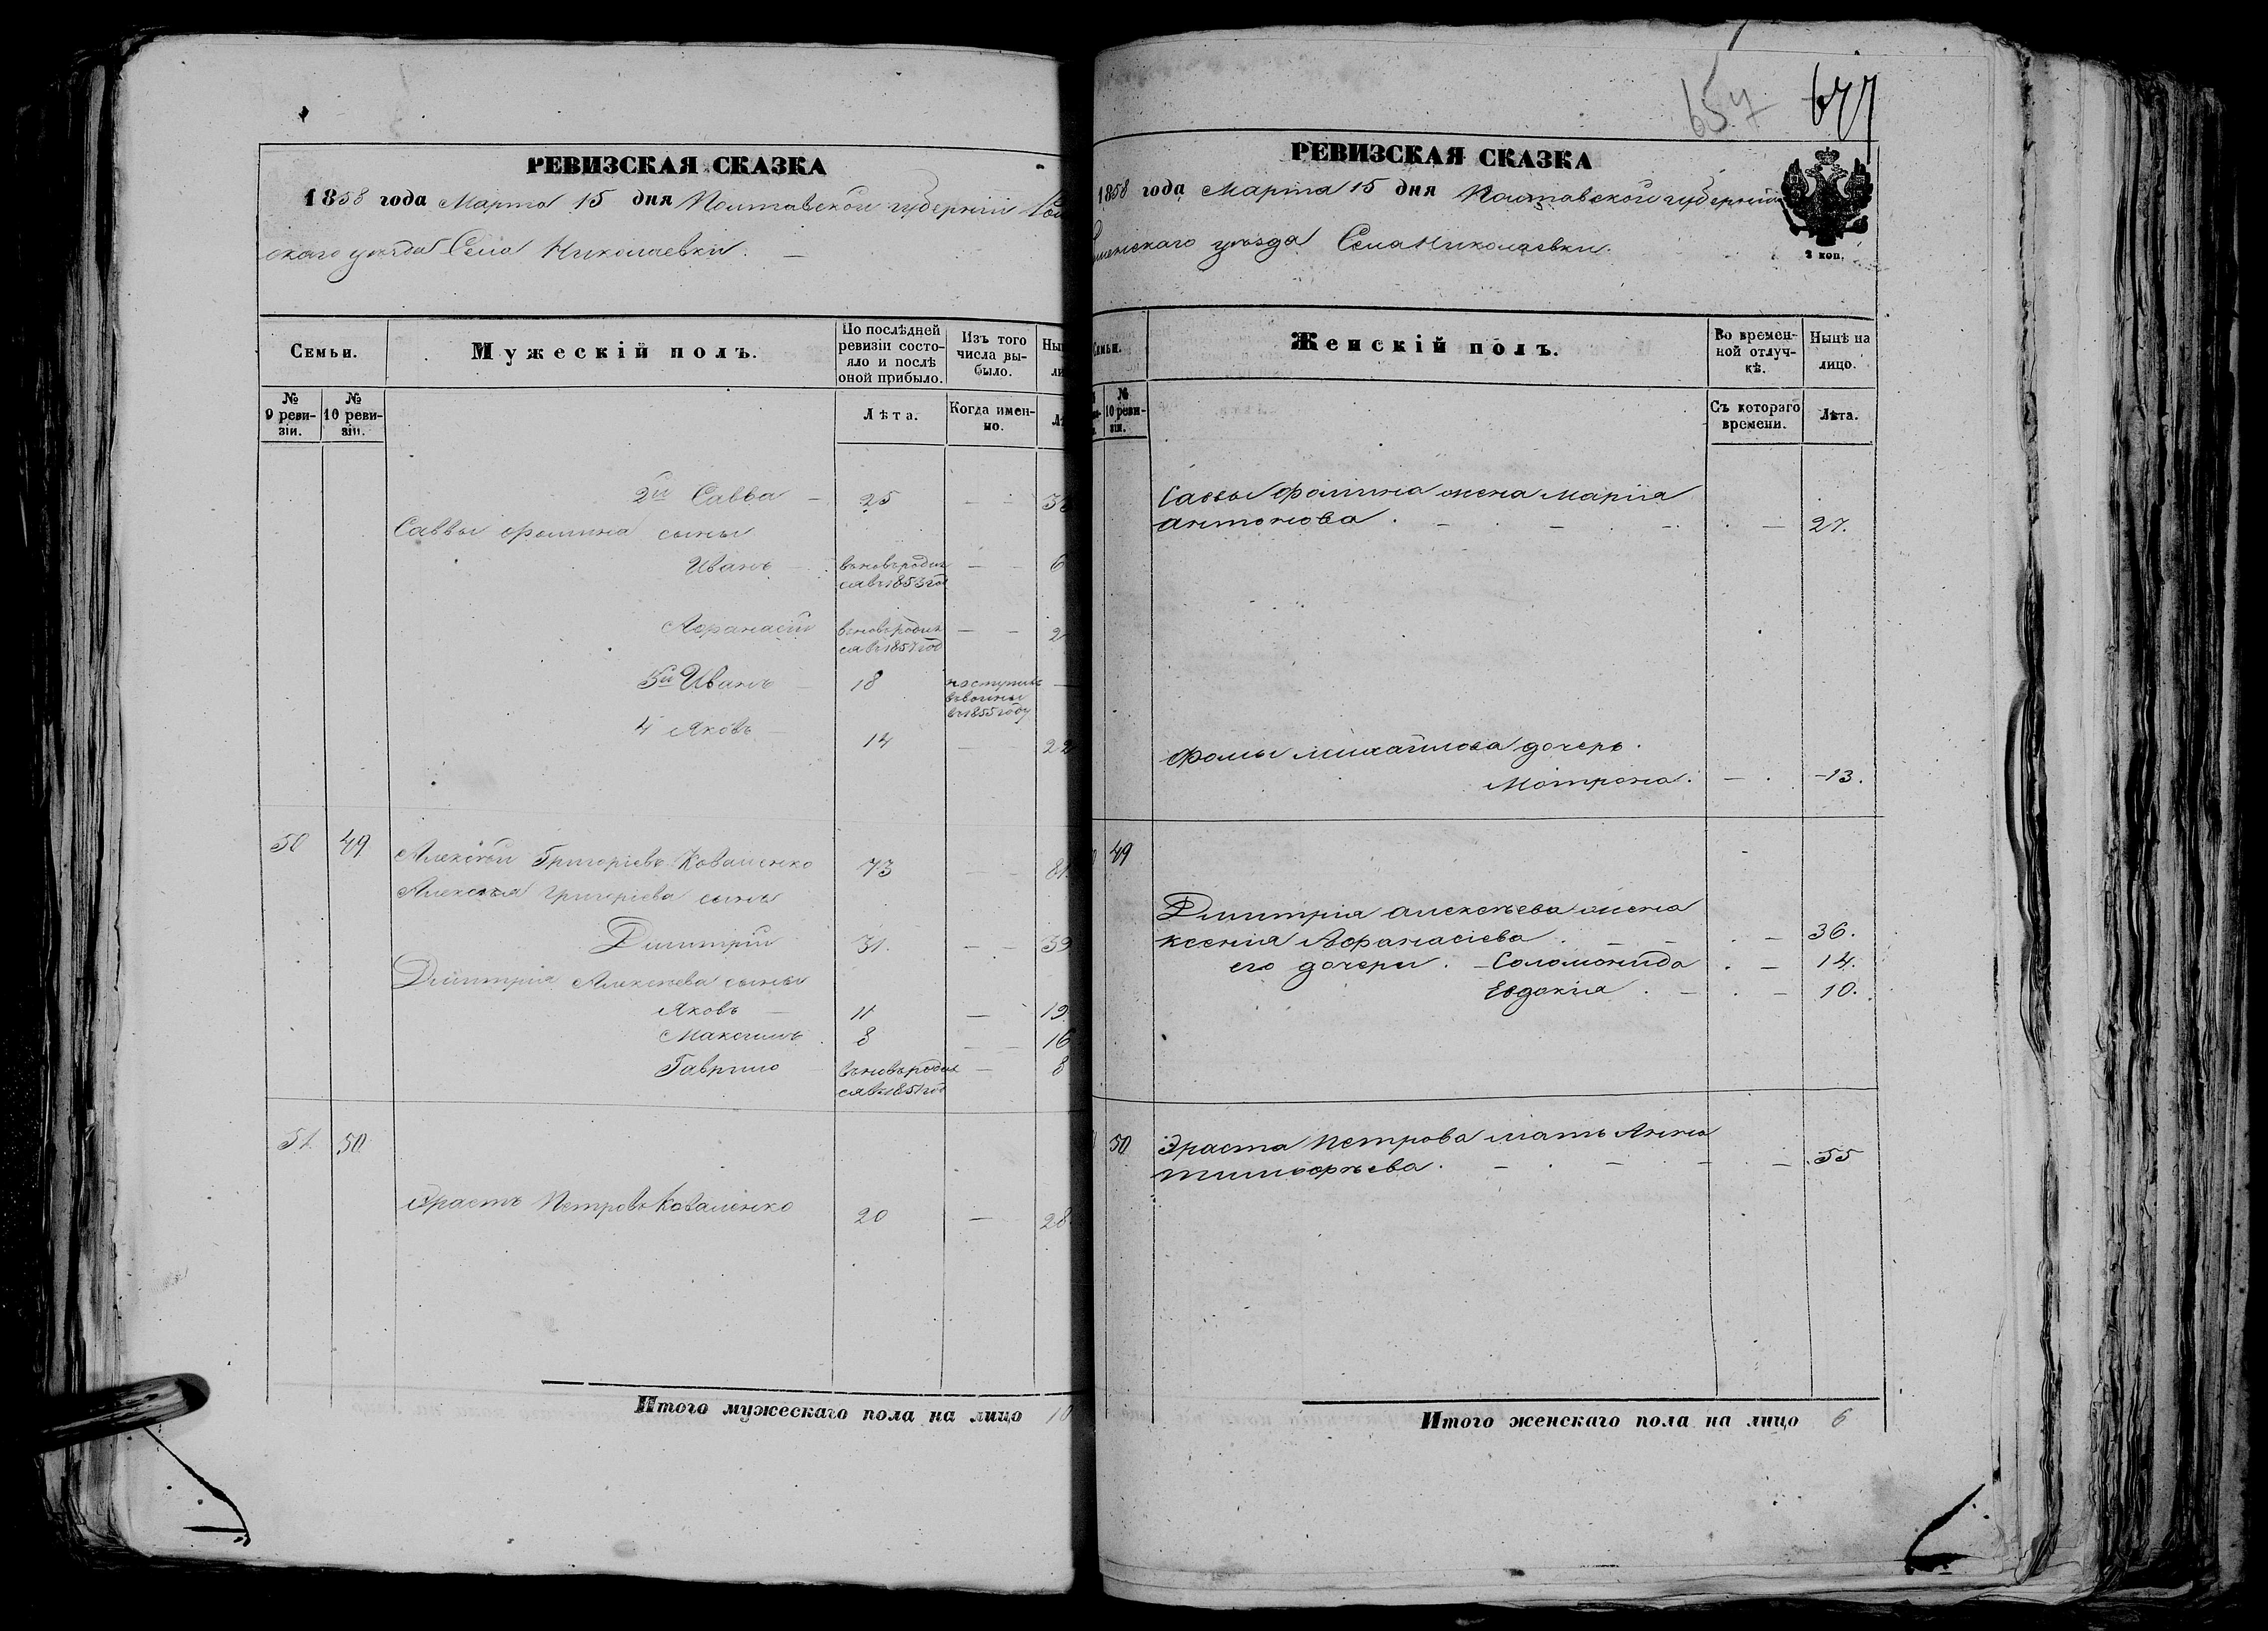 РЕВИЗСКАЯ СКАЗКА
1858 года Марта 15 дня Полтавской губерніи
скаго уѣзда Села Николаевки.
Семьи.
Мужескій полъ.
По послѣдней ревизіи состо-
яло и послѣ
оной прибыло.
Изъ того
числа вы-
было.
№
9 реви-
зіи.
№
10 реви-
зіи.
Лѣта.
Когда имен-
но.
2й Савва 25
Саввы Фомина сыны
Иванъ вновь родил
ся въ 1853 год 6
Афанасій вновь родил
ся въ 1857 год 2
3й Иванъ 18 поступилъ
въ воины
въ 1855 году
4 Яковъ 14 22
50 49 Алексѣй Григоріевъ Коваленко 73 81.
Алексѣя Григоріева сыны
Дмитрій 31. 39
Дмитрія Алексѣева сыны
Яковъ 11 19
Максимъ 8 16
Гаврило вновь родил 8
ся въ 1851 год
51. 50
Эрастъ Петровъ Коваленко 20 28
Итого мужескаго пола на лицо 10
657 677
РЕВИЗСКАЯ СКАЗКА
1858 года Марта 15 дня Полтавской губерніи
менскаго уѣзда Села Николаевки.
2 коп.
Женскій полъ.
Во времен-
ной отлуч-
кѣ.
Нынѣ на
лицо.
№
10 реви-
зіи.
Съ котораго
времени.
Лѣта.
Саввы Фомина жена Марія
Антонова. 27.
Фомы Михайлова дочерь.
Мотрона. 13.
49
Дмитрія Алексѣева жена
Ксенія Афанасіева. 36.
его дочери. Соломонида 14.
Евдокія. 10.
50 Эраста Петрова мать Анна
Тимофѣева. 55
Итого женскаго пола на лицо 6